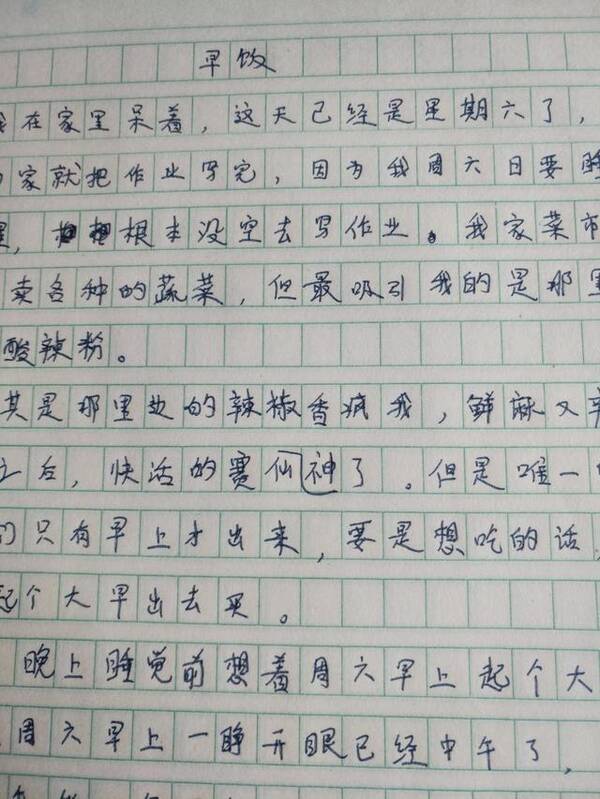 早饮
在家里呆着，这天已经是星期六了，
家就把作业写完，因为我周六日要睡
根本没空去写作业。我家菜市
卖各种的蔬菜，但最吸引我的是那里
酸辣粉。
其是那里边的辣椒香疯我，鲜麻又辛
之后，快活的赛仙神了。但是唯一
们只有早上才出来，要是想吃的话，
起个大早出去买。
晚上睡觉前想着周六早上起个大
周六早上一睁开眼已经中午了，